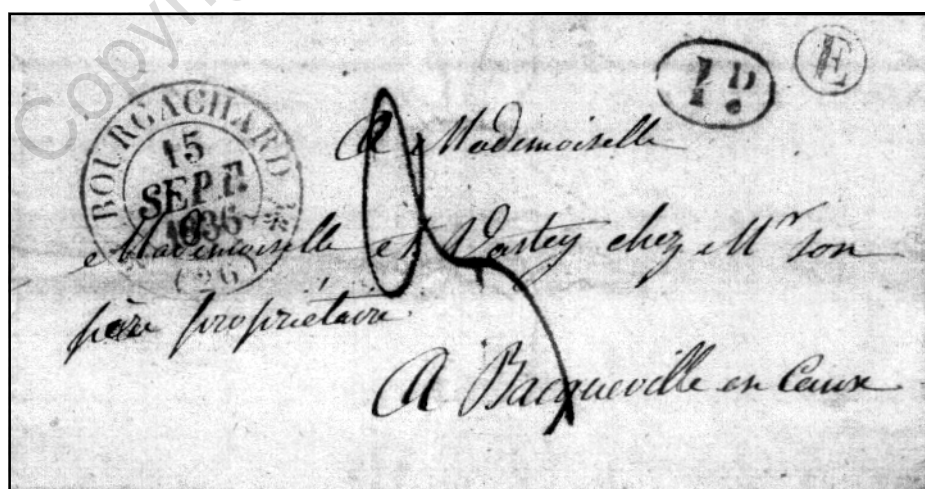 Copyri
1D.
E
BOURGACHARD
15
SEPT.
1836
(26)
A Mademoiselle
Mademoiselle Vastey chez Mr son
père propriétaire
A Bacqueville en Caux